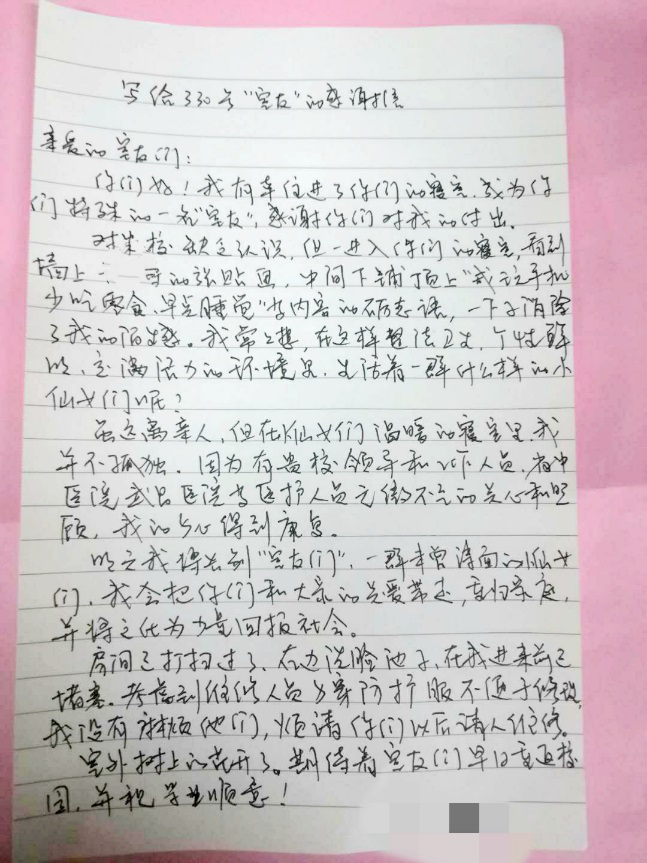 写给330号“室友”的感谢信
亲爱的室友们:
你们好!我有幸住进了你们的寝室,成为你
们特殊的一名“室友”,感谢你们对我的付出。
对贵校缺乏认识,但一进入你们的寝室,看到
墙上 的张贴画,中间下铺顶上“戒玩手机
少吃零食、早点睡觉”等内容的励志语,一下子消除
了我的陌生感。我常常想,在这样整洁卫生、个性鲜
明、充满活力的环境里,生活着一群什么样的小
仙女们呢?
虽远离亲人,但在小仙女们温暖的寝室里,我
并不孤独。因为有贵校领导和 人员,省中
医院武昌医院等医护人员无微不至的关心和照
顾,我的身心得到康复。
明天我得告别“室友们”,一群未曾谋面的小仙女
们,我会把你们和大家的关爱带走,重归家庭,
并将之化为力量回报社会。
房间已打扫过了,右边洗脸池子,在我进来前已
堵塞。考虑到维修人员身穿防护服不便于修理,
我没有麻烦他们,烦请你们以后请人维修。
室外树上的花开了。期待着室友们早日重返校
园,并祝学业顺意!